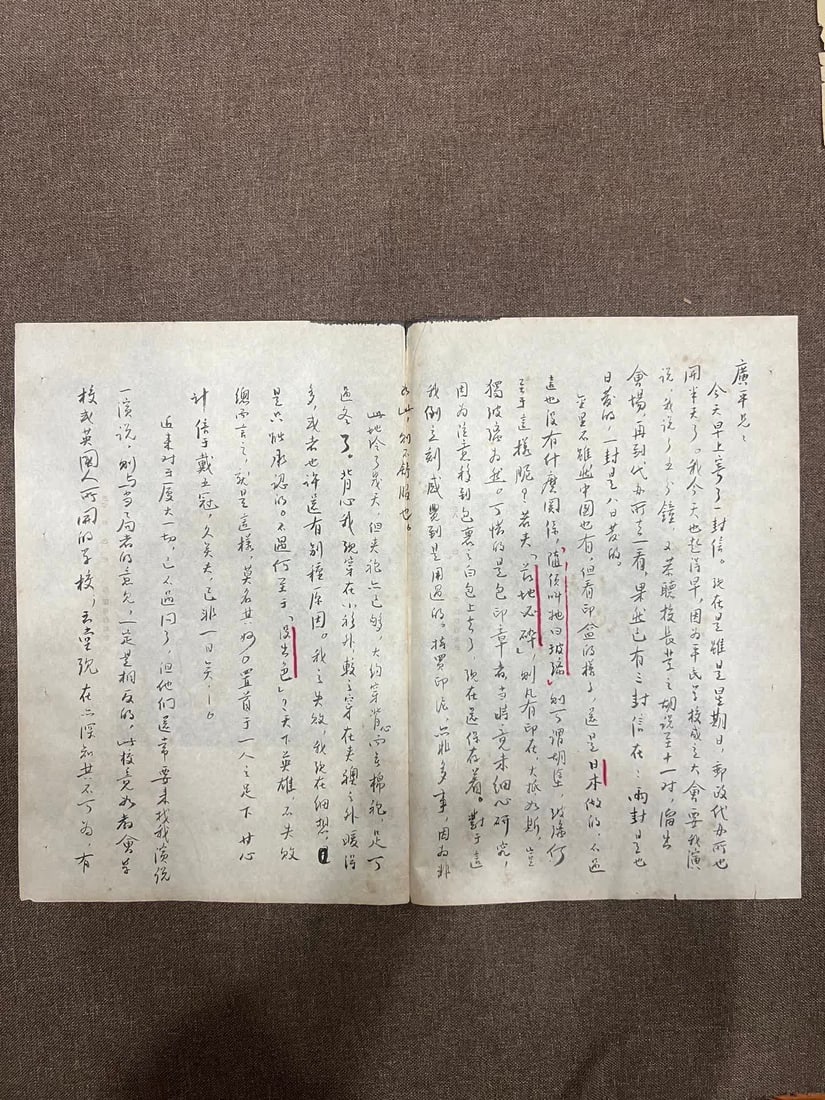 廣平兄：
今天早上寄了一封信。現在是雖是星期日，郵政代办所也
開半天了。我今天也起得早，因為平民学校成立大會要我演
說，我說了五分鐘，又恭聽校長輩之胡説至十一时，溜出
會場，再到代办所去一看，果然已有三封信在：兩封是七
日發的，一封是八日發的。
金星石雖然中国也有，但看印盒的樣子，還是日本做的，不過
這也没有什麼関係。「随便叫牠曰玻璃」，則可謂胡塗，玻璃何
至于這樣脆？若夫「落地必碎」，則凡有印石，大抵如斯，豈
獨玻璃為然。可惜的是包印章者当時竟未细心研究，
因為注意移到包裹之白包上去了，現在還保存着。對于這
我倒立刻感覺到是用過的。特買印泥，亦非多事，因為非
如此，則不舒服也。
此地冷了幾天，但夾袍亦已够，大約穿背心而去棉袍，足可
過冬了。背心我現穿在小衫外，較之穿在夾襖之外暖得
多，或者也許還有别種原因。我之失敗，我現在细想，
是只能承認的。不過何至于「没出色」？天下英雄，不失敗
總而言之，就是這樣，莫名其妙。置首于一人之足下，甘心
什倍于戴王冠，久矣夫，已非一日矣……。
近来对于厦大一切，已不過问了，但他们還常要来找我演说
一演说，則与当局者的意見，一定是相反的，此校竟如教會学
校或英國人所開的学校；玉堂現在亦深知其不可為，有